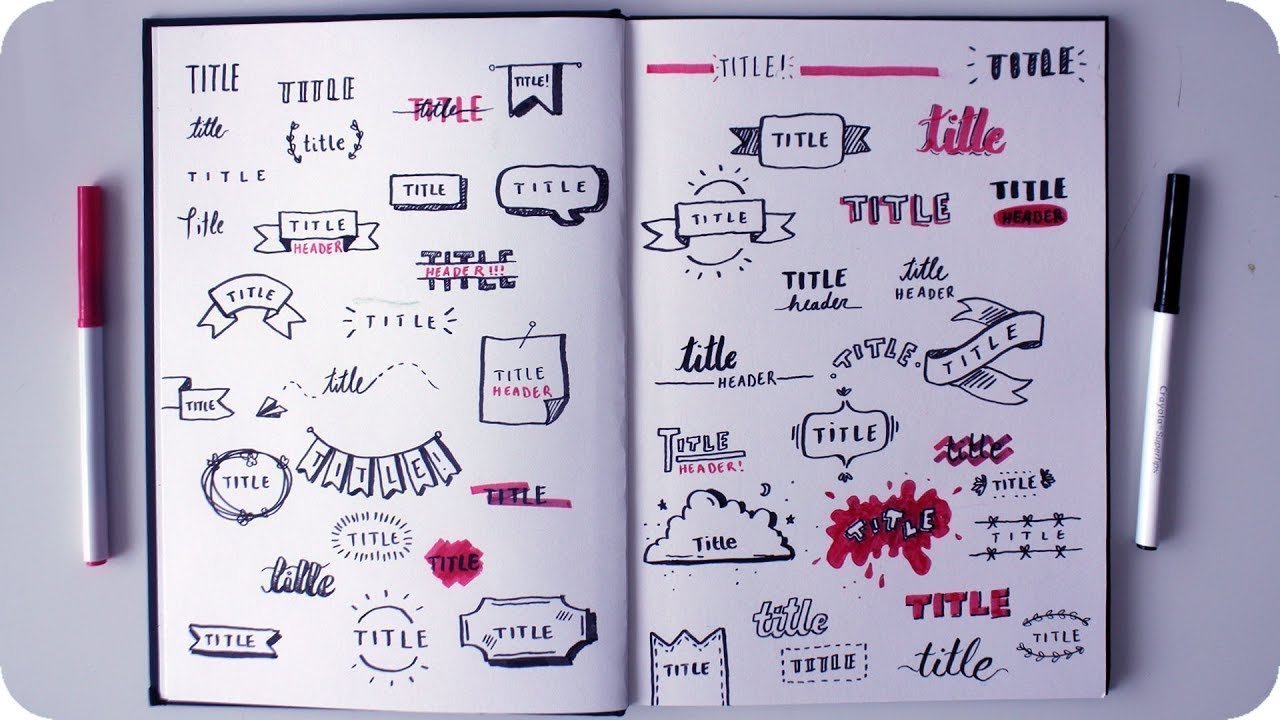 TITLE
TITLE
title
TITLE
TITLE!
title
title
TITLE
TITLE
TITLE
Title
TITLE
HEADER
TITLE
HEADER!!!
TITLE
TITLE
TITLE
title
TITLE
HEADER
TITLE
TITLE!
TITLE
TITLE
TITLE
TITLE
title
TITLE
TITLE
TITLE
TITLE!
TITLE
TITLE
title
TITLE
TITLE
TITLE
HEADER
TITLE
header
title
HEADER
TITLE
title
HEADER
TITLE
TITLE
TITLE
HEADER!
title
TITLE
Title
TITLE
TITLE
title
TITLE
TITLE
TITLE
TITLE
title
Crayola Supertips